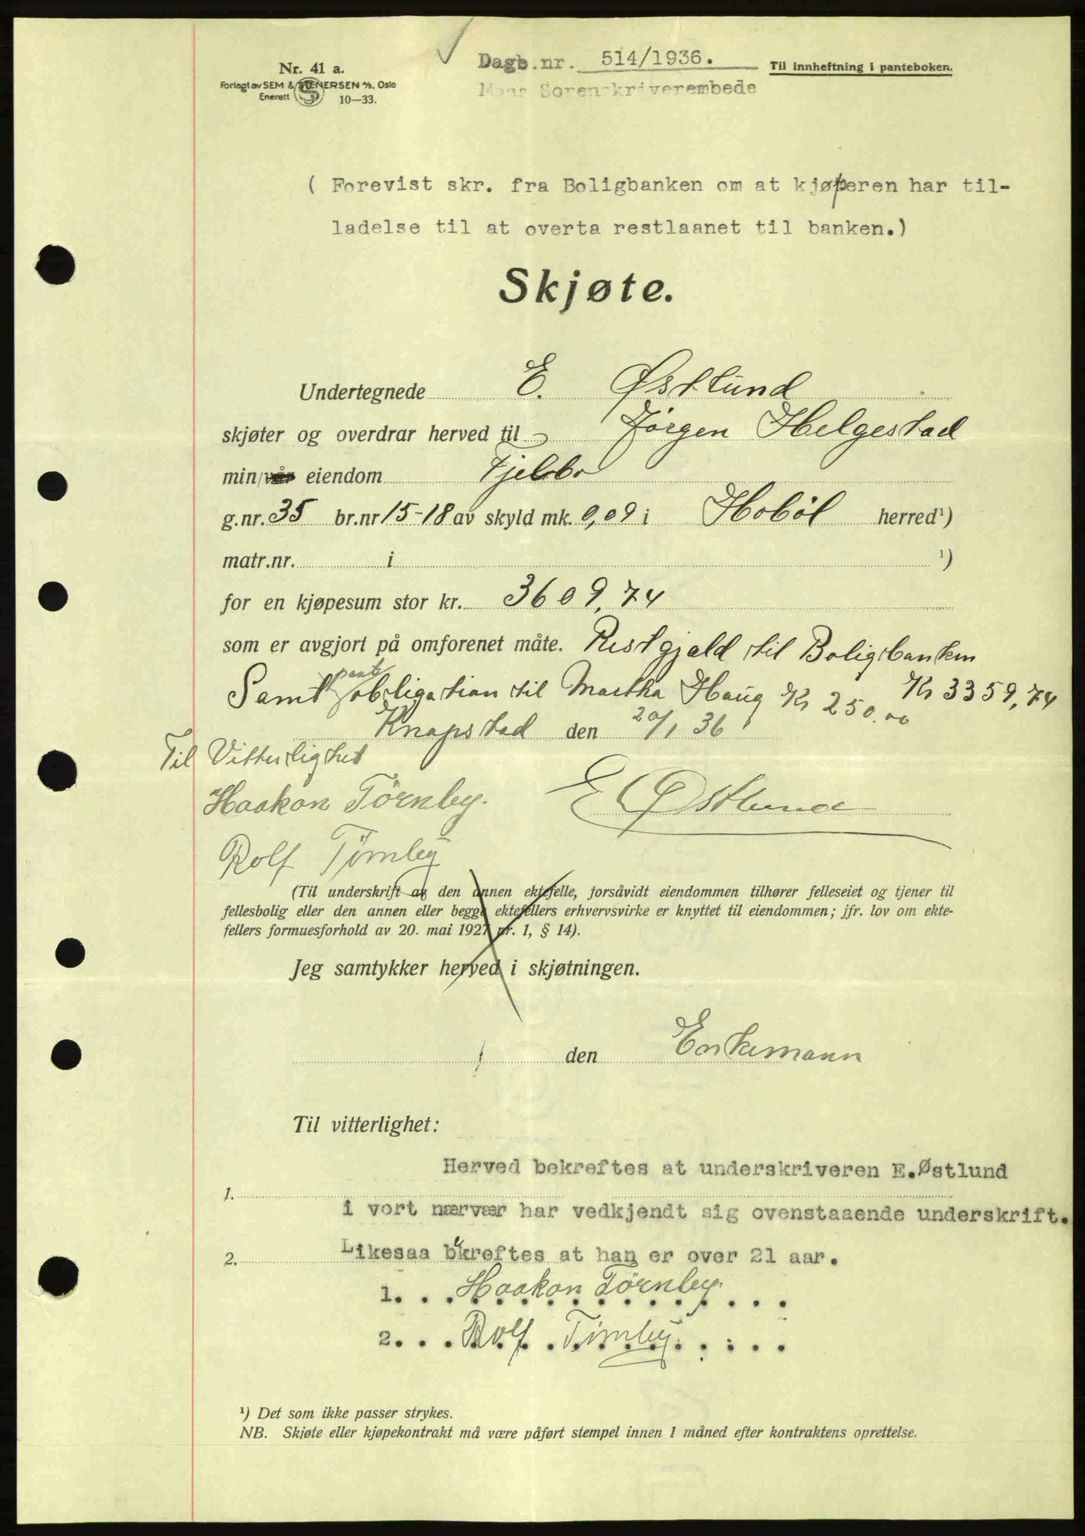 Nr. 41 a.
Forlagt av SEM & STENERSEN A/S, Oslo
Enerett 10—33.
Dagb.nr. 514/1936.
Til innheftning i panteboken.
Moss Sorenskriverembede
( Forevist skr. fra Boligbanken om at kjøperen har til-
ladelse til at overta restlaanet til banken.)
Skjøte.
Undertegnede E. Østlund
skjøter og overdrar herved til Jørgen Helgestad
min/vår eiendom Fjelbo
g.nr. 35 br.nr 15-18 av skyld mk. 0,09 i Hobøl herred¹)
matr.nr. i ¹)
for en kjøpesum stor kr. 3609,74
som er avgjort på omforenet måte. Restgjeld til Boligbanken
Kr 3359,74
Samt pantobligation til Martha Haug Kr 250.00
Knapstad den 20/1 36
Til Vitterlighet
Haakon Tørnby. E Østlund
Rolf Tømby
(Til underskrift av den annen ektefelle, forsåvidt eiendommen tilhører felleseiet og tjener til
fellesbolig eller den annen eller begge ektefellers erhvervsvirke er knyttet til eiendommen; jfr. lov om ekte-
fellers formuesforhold av 20. mai 1927 nr. 1, § 14).
Jeg samtykker herved i skjøtningen.
den Enkemann
Til vitterlighet:
Herved bekreftes at underskriveren E.Østlund
1.
i vort nærvær har vedkjendt sig ovenstaaende underskrift.
Likesaa bekreftes at han er over 21 aar.
2.
1. Haakon Tørnby.
2. Rolf Tømby.
¹) Det som ikke passer strykes.
NB. Skjøte eller kjøpekontrakt må være påført stempel innen 1 måned efter kontraktens oprettelse.